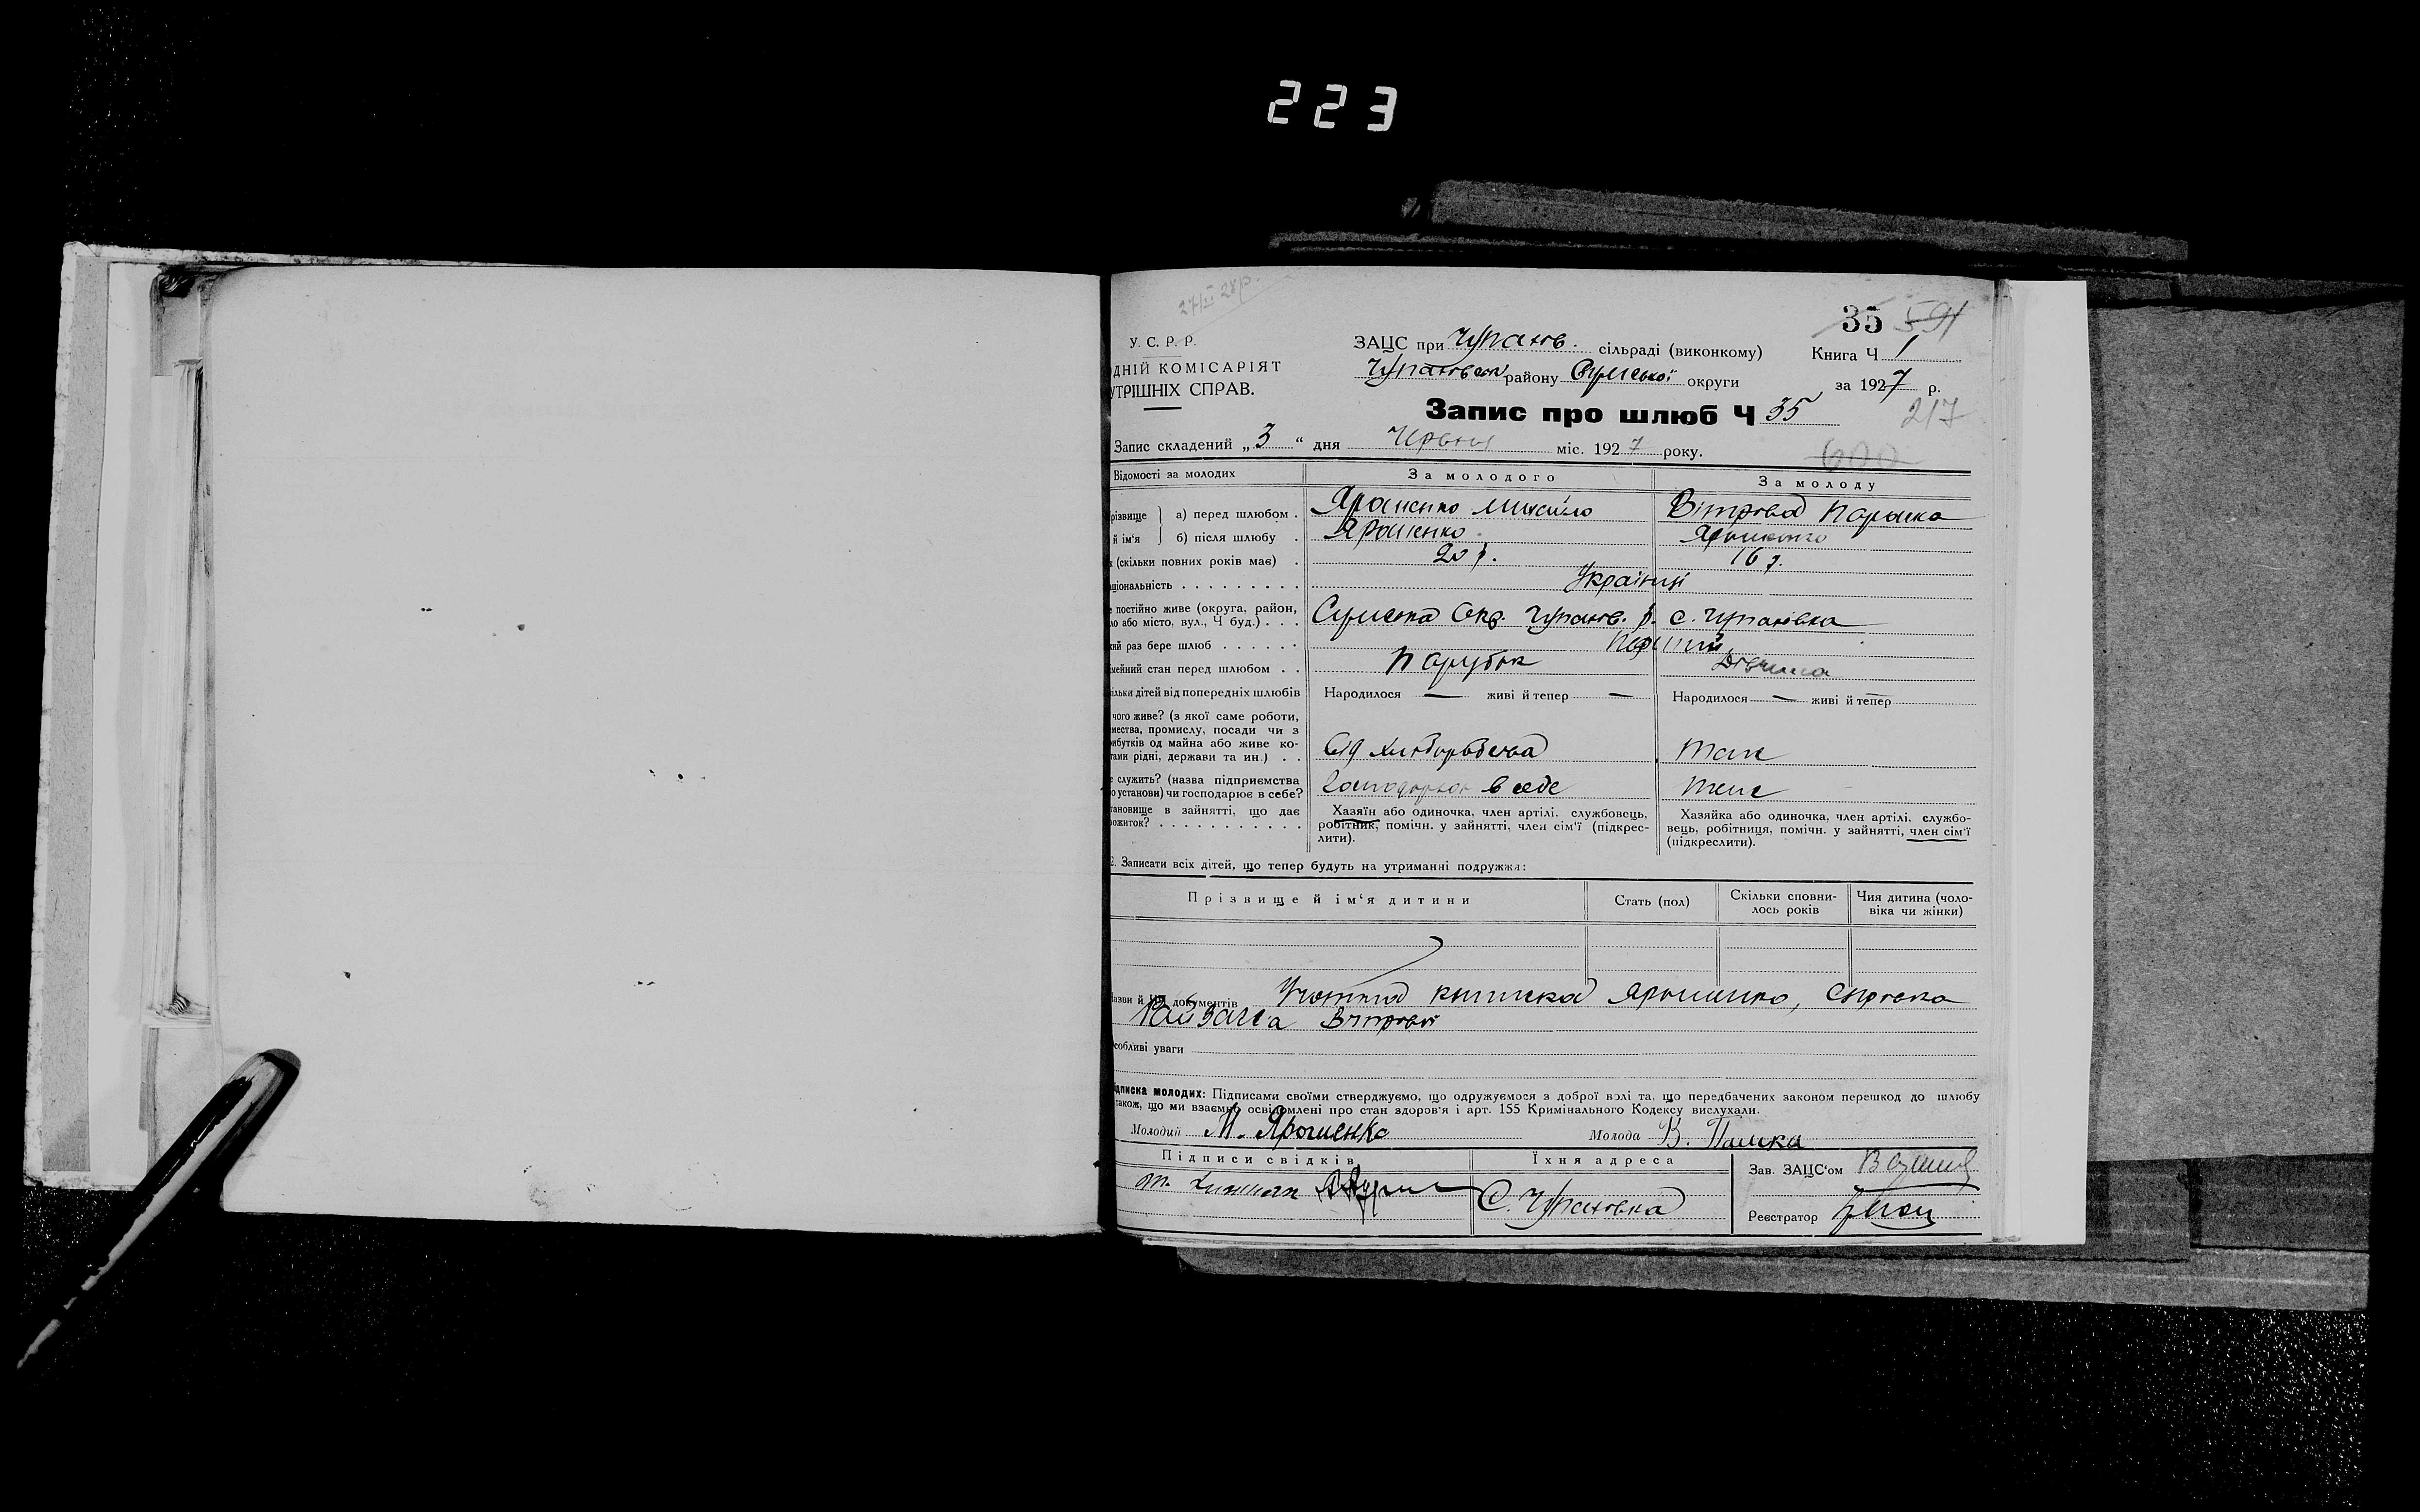 223
27/II 28р.
35 591
У. С. Р. Р.
ЗАЦС при Чупахів. сільраді (виконкому) Книга Ч 1
ДНІЙ КОМІСАРІЯТ
Чупахівськ району Сумської округи за 1927 р.
УТРІШНІХ СПРАВ.
Запис про шлюб Ч 35
217
Запис складений „3“ дня Червня міс. 1927 року.
600
Відомості за молодих За молодого За молоду
різвище а) перед шлюбом . Ярошенко Михайло Вітрова Параска
й ім'я б) після шлюбу . Ярошенко Ярошенко
к (скільки повних років має) . 20 р. 16 р.
ціональність . . . . . . . . . Українці
е постійно живе (округа, район,
ло або місто, вул., Ч буд.) . . . Сумська Окр. Чупахів. р. с. Чупахівка
кий раз бере шлюб . . . . . . Перший
мейний стан перед шлюбом . . Парубок Дівчина
ільки дітей від попередніх шлюбів Народилося — живі й тепер — Народилося — живі й тепер —
чого живе? (з якої саме роботи,
мества, промислу, посади чи з
ибутків од майна або живе ко-
тами рідні, держави та ин.) . . Від хліборобства теж
е служить? (назва підприємства
о установи) чи господарює в себе? в себе теж
тановище в зайнятті, що дає
рожиток? . . . . . . . . . . .
Хазяїн або одиночка, член артілі, службовець,
робітник, помічн. у зайнятті, член сім'ї (підкрес-
лити).
Хазяйка або одиночка, член артілі, службо-
вець, робітниця, помічн. у зайнятті, член сім'ї
(підкреслити).
2. Записати всіх дітей, що тепер будуть на утриманні подружжя:
Прізвище й ім'я дитини Стать (пол) Скільки сповни-
лось років Чия дитина (чоло-
віка чи жінки)
азви й ЧЧ документів книжка Ярошенко,
Вітрової
собливі уваги
дписка молодих: Підписами своїми стверджуємо, що одружуємося з доброї волі та, що передбачених законом перешкод до шлюбу
також, що ми взаємно освідомлені про стан здоров'я і арт. 155 Кримінального Кодексу вислухали.
Молодий М. Ярошенко Молода В. Пашка
Підписи свідків Їхня адреса Зав. ЗАЦС'ом
С. Чупахівка
Реєстратор